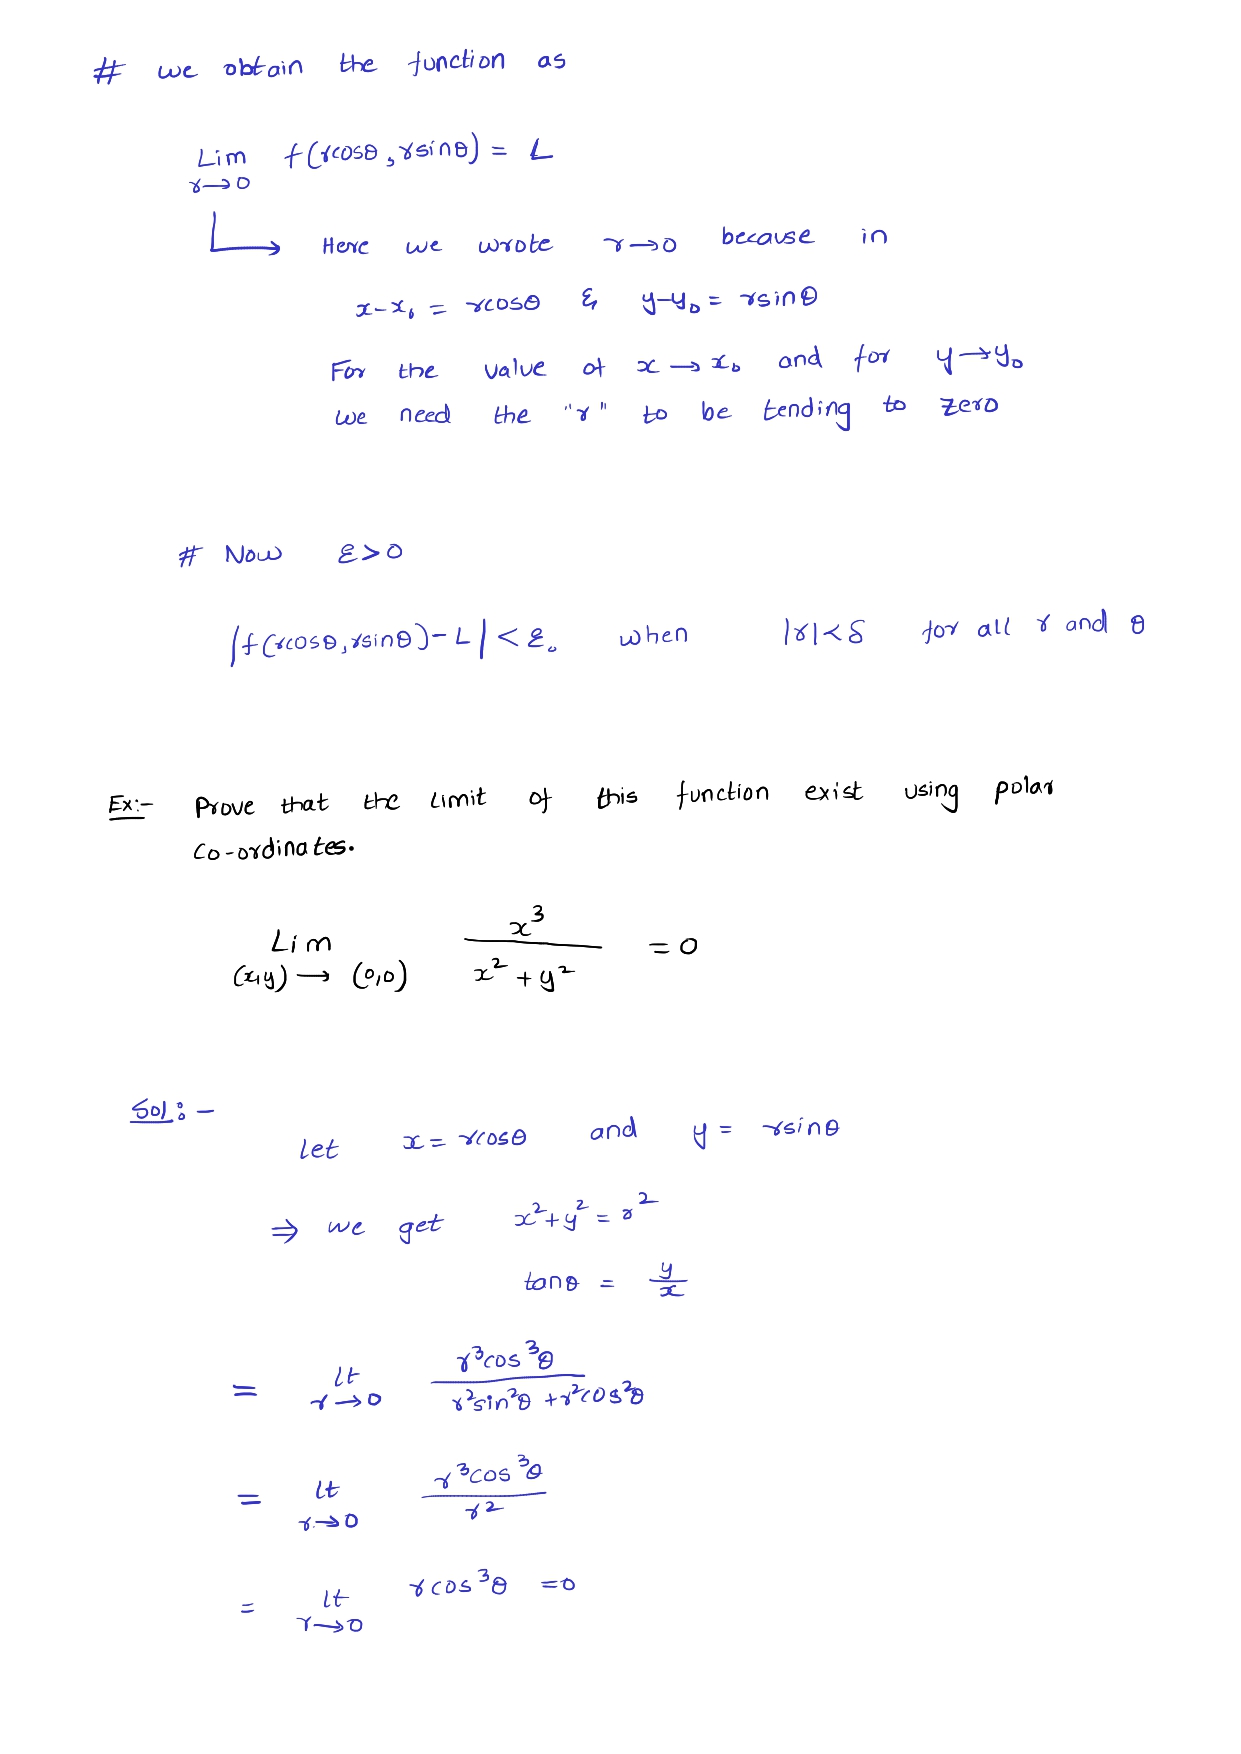 # we obtain the function as
Lim f(rcosθ, rsinθ) = L
r→0
Here we wrote r→0 because in
x-x₀ = rcosθ & y-y₀ = rsinθ
For the value of x → x₀ and for y→y₀
we need the "r" to be tending to zero
# Now ε>0
|f(rcosθ, rsinθ)-L| < ε. when |r|<δ for all r and θ
Ex:- Prove that the limit of this function exist using polar
co-ordinates.
Lim x³/(x²+y²) = 0
(x,y) → (0,0)
Sol:-
Let x = rcosθ and y = rsinθ
⇒ we get x²+y² = r²
tanθ = y/x
= lt r³cos³θ/(r²sin²θ + r²cos²θ)
r→0
= lt r³cos³θ/r²
r→0
= lt rcos³θ =0
r→0